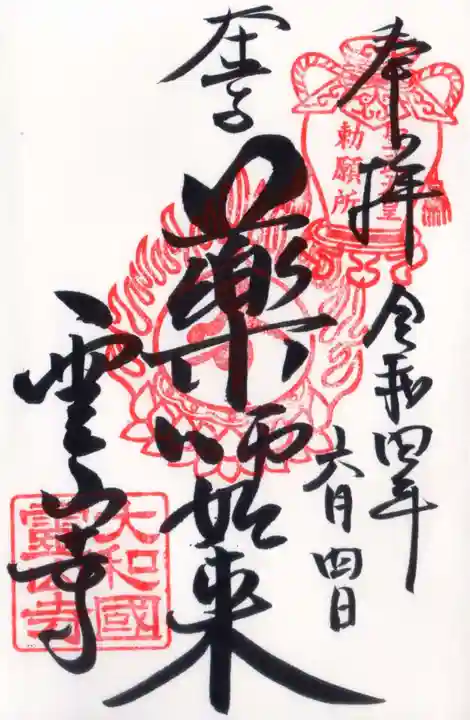 奉拝
聖武天皇
勅願所
令和四年
六月四日
薬師如来
霊山寺
大和國
靈山寺